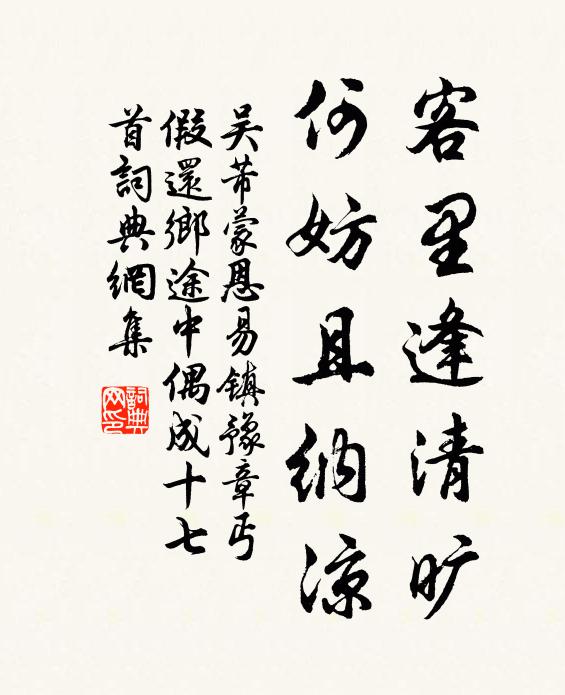 客里逢清旷
何妨且纳凉
吴芾蒙恩易镇豫章丐
假還鄉途中偶成十七
首詞典網集
詞典网印